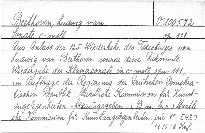 Beethoven, Ludwig van V 100.542
Sonate c-moll op 111
Aus Anlass der 125. Wiederkehr des Todestages von
Ludwig van Beethoven wurde diese Faksimile
Wiedergabe der Klaviersonate in c-moll opus 111
im Auftrage der Regierung der Deutschen Demokra-
tischen Republik Staatliche Kommission für Kunst-
angelegenheiten
liche Kommission für Kunstangelegenheiten